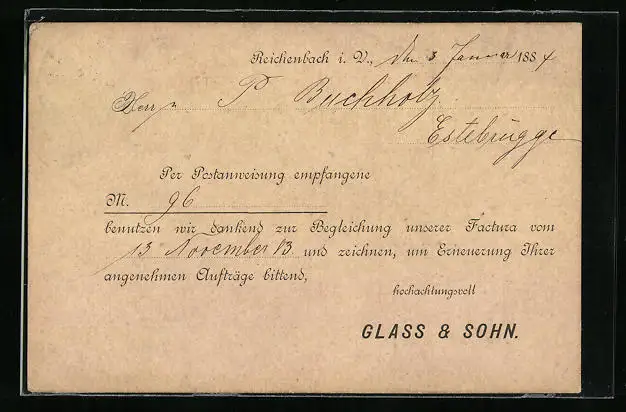 Reichenbach i. V., den 3 Januar 1884
Herrn P. Buchholz
Estebrügge
Per Postanweisung empfangene
M. 96
benutzen wir dankend zur Begleichung unserer Factura vom
13 November 83 und zeichnen, um Erneuerung Ihrer
angenehmen Aufträge bittend,
hochachtungsvoll
GLASS & SOHN.